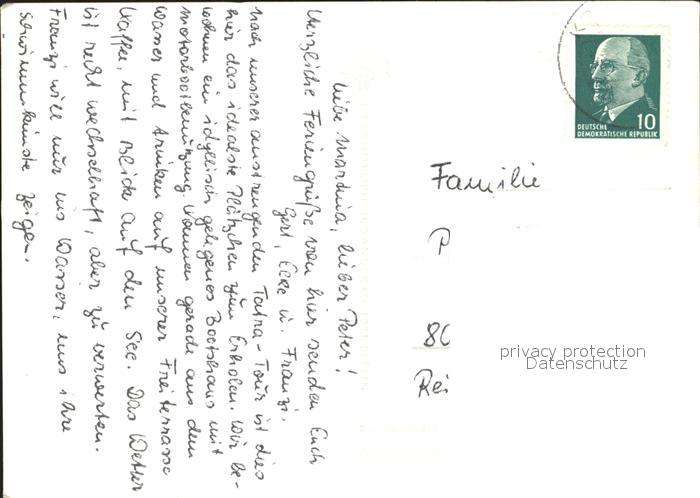 Liebe Martina, lieber Peter!
Herzliche Feriengrüße von hier senden Euch
Gert, Elke u. Franzi.
Nach unserer anstrengenden Tatra-Tour ist dies
hier das idealste Plätzchen zum Erholen. Wir be-
wohnen ein idyllisch gelegenes Bootshaus mit
Motorbootbenutzung. Kommen gerade aus dem
Wasser und trinken auf unserer Freiterrasse
Kaffee, mit Blick auf den See. Das Wetter
ist recht wechselhaft, aber zu verwerten.
Franzi will nur ins Wasser, uns ihre
Schwimmkünste zeigen.
10
DEUTSCHE
DEMOKRATISCHE REPUBLIK
Familie
P
80
Rei
privacy protection
Datenschutz